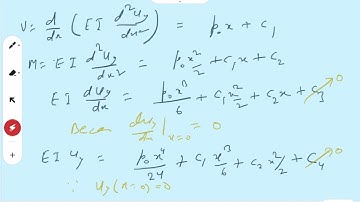 V = d/dx (EI d²uy/dx²) = p₀x + c₁
M = EI d²uy/dx² = p₀x²/2 + c₁x + c₂
EI duy/dx = p₀x³/6 + c₁x²/2 + c₂x + c₃ → 0
duy/dx |x=0 = 0
EI uy = p₀x⁴/24 + c₁x³/6 + c₂x²/2 + c₄ → 0
∵ uy(x=0)=0